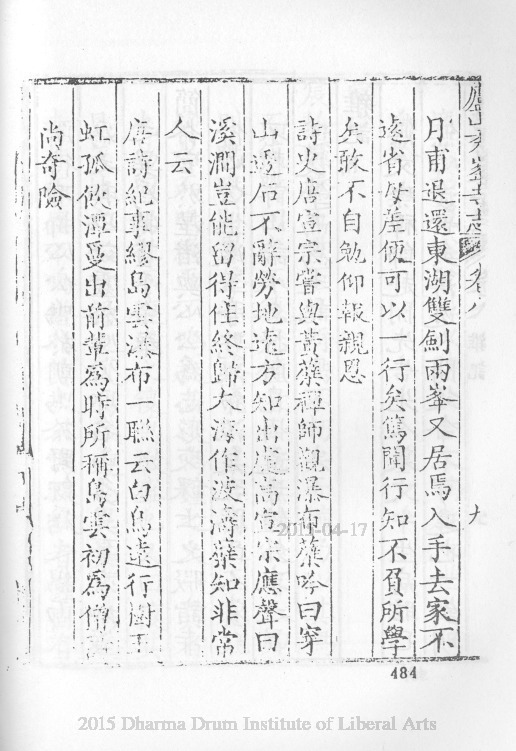 廬山秀峯寺志 卷八 九
月甫退還東湖雙劍兩峯又居焉入手去家不
遠省母差便可以一行矣篤聞行知不負所學
矣敢不自勉仰報親恩
詩史唐宣宗嘗與黃蘗禪師觀瀑布蘗吟曰穿
山透石不辭勞地遠方知出處高宣宗應聲曰
溪澗豈能留得住終歸大海作波濤蘗知非常
人云
唐詩紀事繆島雲瀑布一聯云白鳥遠行樹玉
虹孤飲潭蔓出前輩為時所稱島雲初為僧
尚奇險
2011-04-17
484
2015 Dharma Drum Institute of Liberal Arts